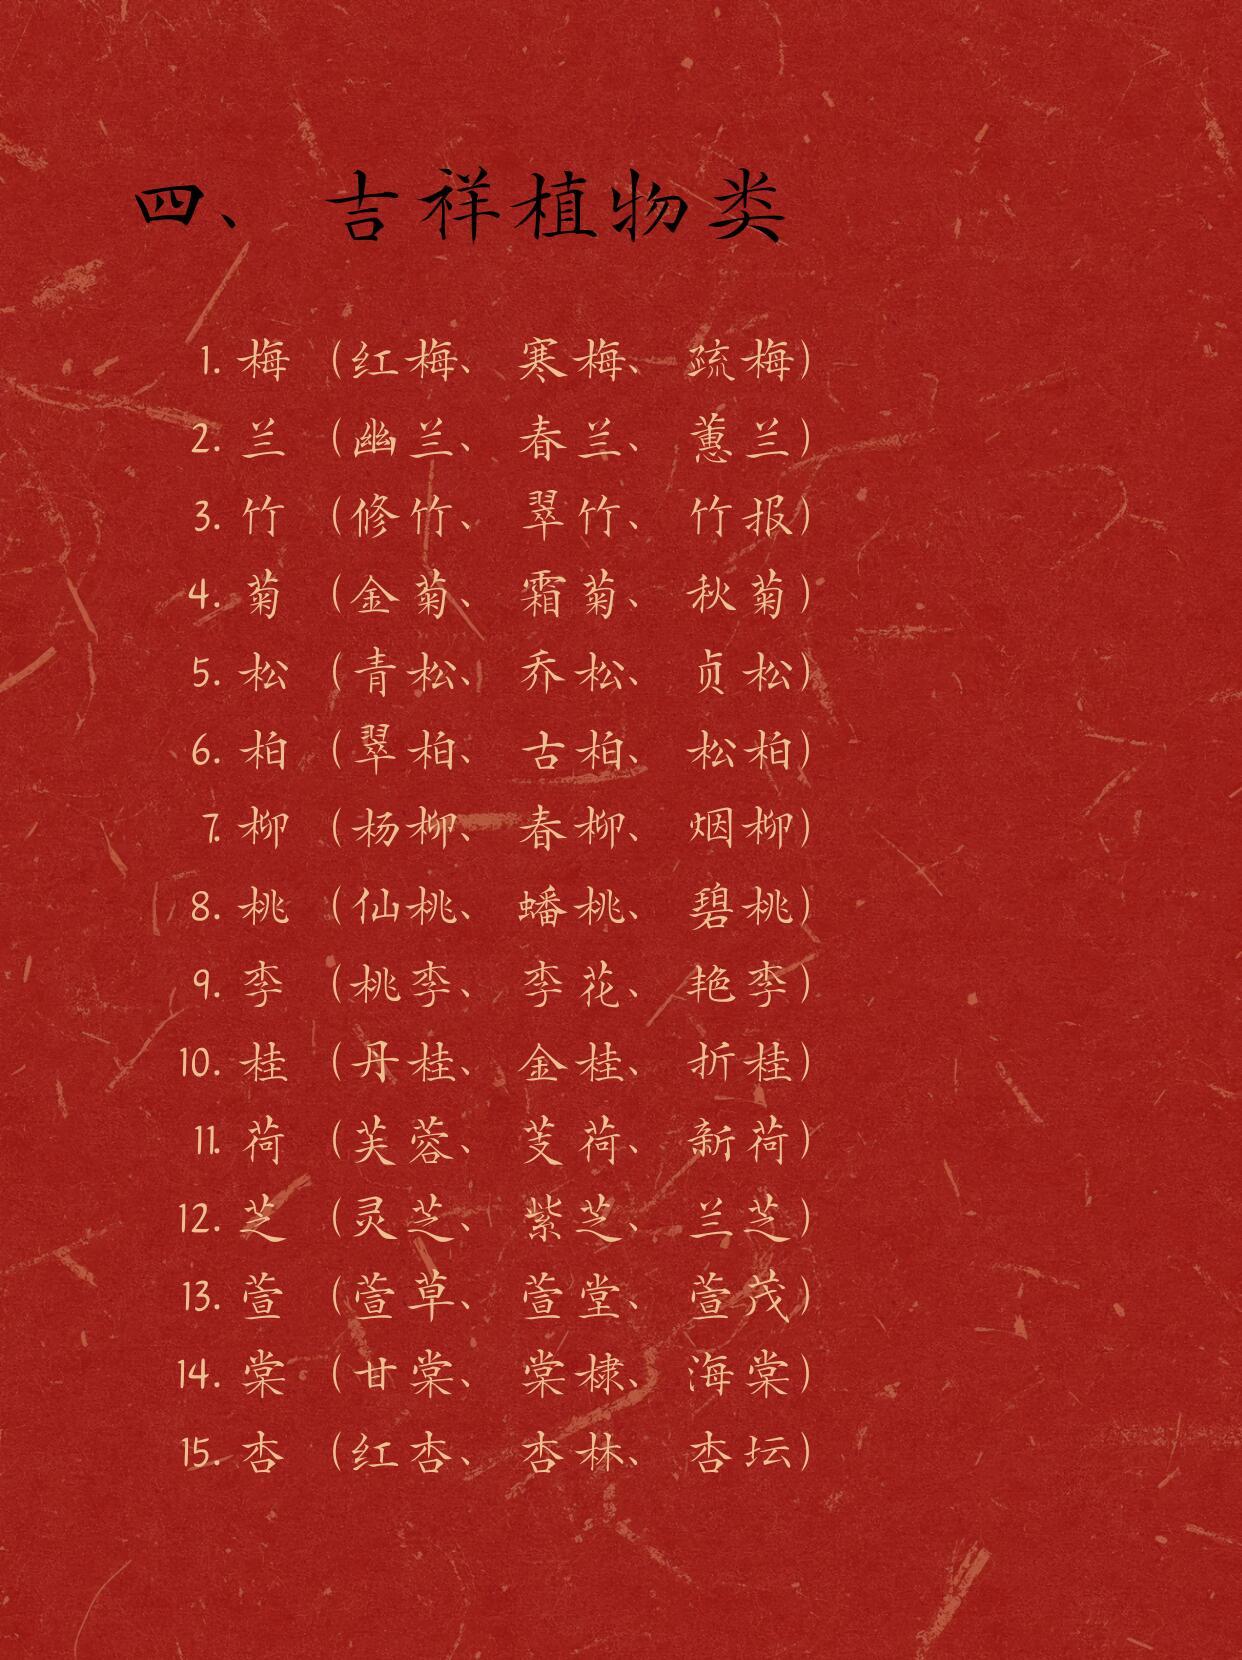 四、 吉祥植物类
1. 梅 （红梅、 寒梅、 疏梅）
2. 兰 （幽兰、 春兰、 蕙兰）
3. 竹 （修竹、 翠竹、 竹报）
4. 菊 （金菊、 霜菊、 秋菊）
5. 松 （青松、 乔松、 贞松）
6. 柏 （翠柏、 古柏、 松柏）
7. 柳 （杨柳、 春柳、 烟柳）
8. 桃 （仙桃、 蟠桃、 碧桃）
9. 李 （桃李、 李花、 艳李）
10. 桂 （丹桂、 金桂、 折桂）
11. 荷 （芙蓉、 芰荷、 新荷）
12. 芝 （灵芝、 紫芝、 兰芝）
13. 萱 （萱草、 萱堂、 萱茂）
14. 棠 （甘棠、 棠棣、 海棠）
15. 杏 （红杏、 杏林、 杏坛）